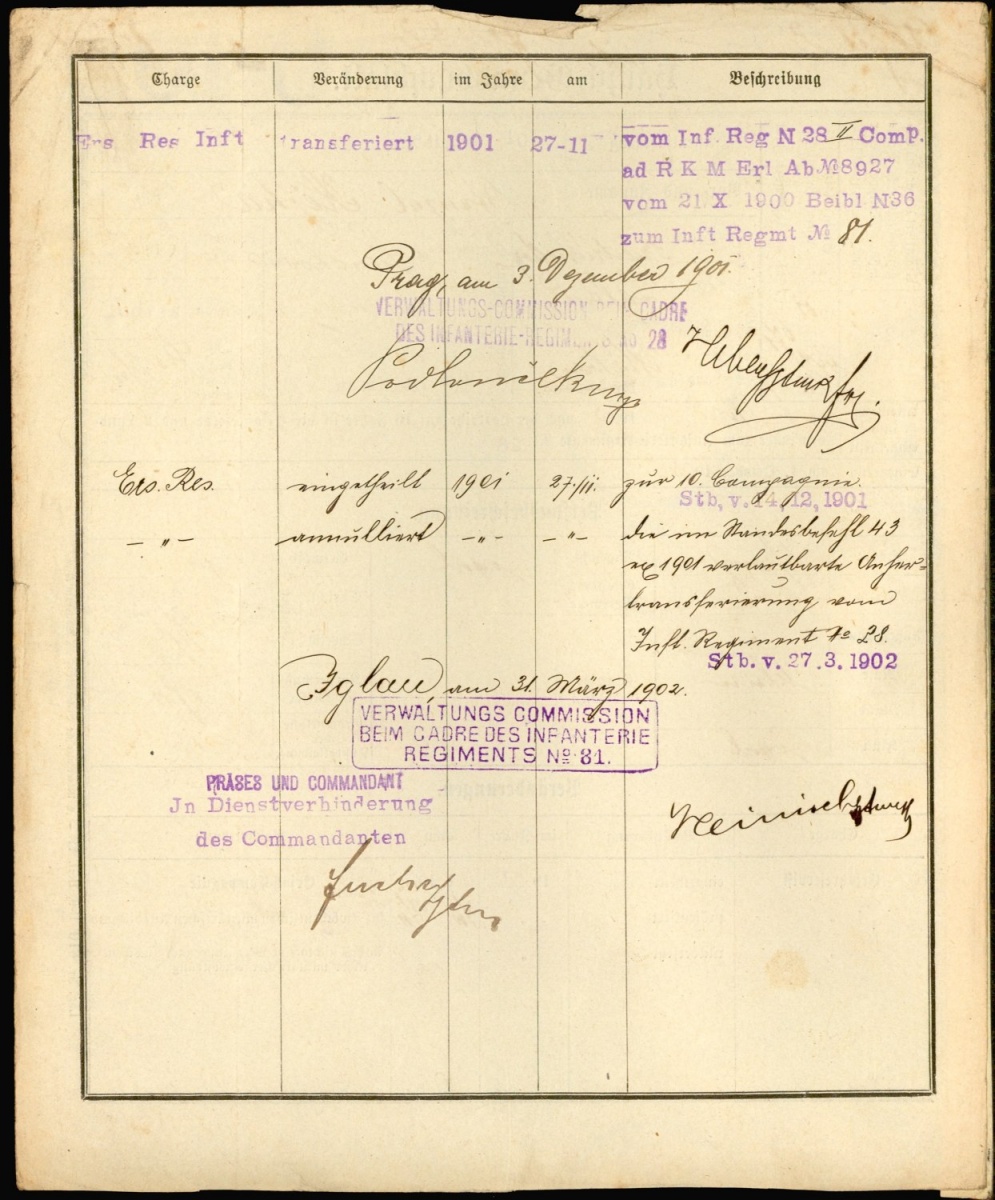 Charge Veränderung im Jahre am Beschreibung
Ers Res Inft transferiert 1901 27-11 vom Inf. Reg N 28 II Comp.
ad R K M Erl Ab № 8927
vom 21 X 1900 Beibl N36
zum Inft Regmt № 81.
Prag, am 3. Dezember 1901.
VERWALTUNGS-COMMISSION BEIM CADRE
DES INFANTERIE-REGIMENTS NO 28
Ers. Res. eingetheilt 1901 27./11. zur 10. Compagnie.
Stb. v. 14. 12, 1901
— „ — annulliert — „ — — „ — die im Standesbefehl 43
ex 1901 verlautbarte Anher=
transferierung vom
Inft. Regiment No 28.
Stb. v. 27. 3. 1902
Iglau, am 31. März 1902.
VERWALTUNGS COMMISSION
BEIM CADRE DES INFANTERIE
REGIMENTS No 81.
PRÄSES UND COMMANDANT
Jn Dienstverhinderung
des Commandanten